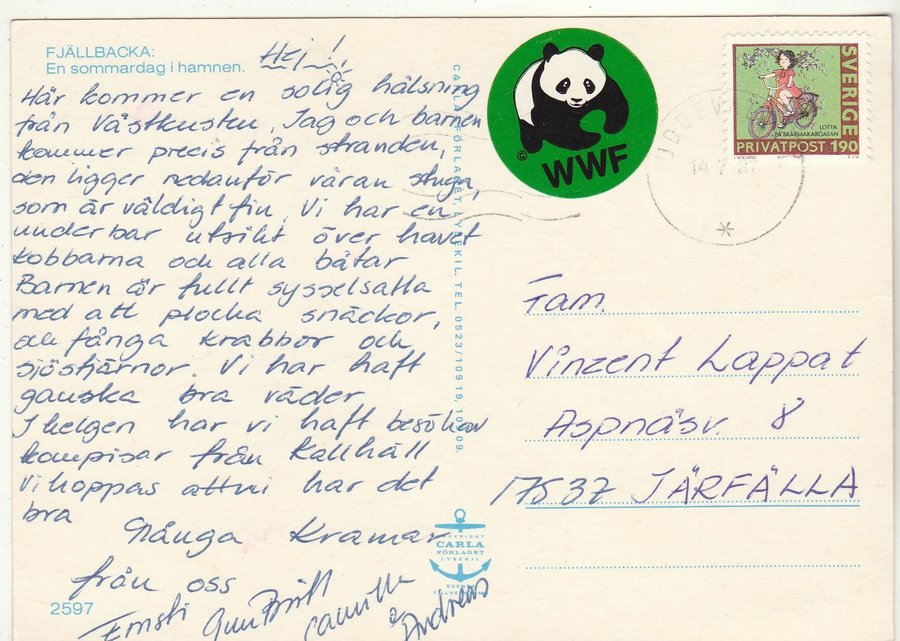 FJÄLLBACKA:
En sommardag i hamnen.
Hej!
Här kommer en solig hälsning
från Västkusten, Jag och barnen
kommer precis från stranden,
den ligger nedanför våran stuga,
som är väldigt fin. Vi har en
underbar utsikt över havet
kobbarna och alla båtar
Barnen är fullt sysselsatta
med att plocka snäckor,
och fånga krabbor och
sjöstjärnor. Vi har haft
ganska bra väder
I helgen har vi haft besök av
kompisar från Kallhäll
Vi hoppas att ni har det
bra
Många Kramar
från oss
Ernst GunBritt Camilla
& Andreas
2597
CARLA FÖRLAGET, LYSEKIL. TEL. 0523/109 19, 109 09.
© WWF
SVERIGE
LOTTA
PÅ BRÅKMAKARGATAN
PRIVATPOST 190
14 7 87
Fam.
Vinzent Lappat
Aspnäsv. 8
17537 JÄRFÄLLA
COPYRIGHT
CARLA
FÖRLAGET
LYSEKIL